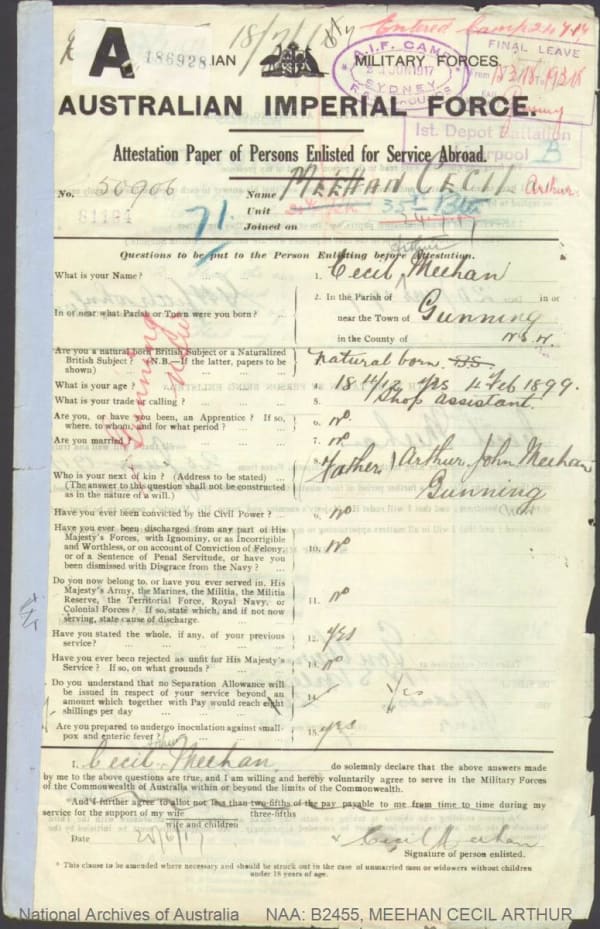 A
186928
18/7/18
Entered Camp 24
A.I.F. CAMP
JUN 1917
SYDNEY
FINAL LEAVE
From
MILITARY FORCES.
AUSTRALIAN IMPERIAL FORCE.
1st. Depot Battalion
Liverpool
B
Attestation Paper of Persons Enlisted for Service Abroad.
No. 50906
Name MEEHAN CECIL Arthur
81194
71.
Unit 35th Bttn
Joined on
Questions to be put to the Person Enlisting before Attestation.
What is your Name? 1. Cecil Arthur Meehan
In or near what Parish or Town were you born? 2. In the Parish of in or
near the Town of Gunning
in the County of N.S.W.
Are you a natural born British Subject or a Naturalized
British Subject? (N.B.—If the latter, papers to be
shown) natural born BS
What is your age? 18 4/12 yrs 4 Feb 1899.
What is your trade or calling? Shop assistant.
Are you, or have you been, an Apprentice? If so,
where, to whom, and for what period? 6. No
Are you married? 7. No
Who is your next of kin? (Address to be stated)
(The answer to this question shall not be constructed
as in the nature of a will.)
8. Father) Arthur John Meehan
Gunning
NSW
Gunning
NSW
Have you ever been convicted by the Civil Power? 9. No
Have you ever been discharged from any part of His
Majesty's Forces, with Ignominy, or as Incorrigible
and Worthless, or on account of Conviction of Felony,
or of a Sentence of Penal Servitude, or have you
been dismissed with Disgrace from the Navy? 10. No
Do you now belong to, or have you ever served in, His
Majesty's Army, the Marines, the Militia, the Militia
Reserve, the Territorial Force, Royal Navy, or
Colonial Forces? If so, state which, and if not now
serving, state cause of discharge. 11. No
Have you stated the whole, if any, of your previous
service? 12. yes
Have you ever been rejected as unfit for His Majesty's
Service? If so, on what grounds? no
Do you understand that no Separation Allowance will
be issued in respect of your service beyond an
amount which together with Pay would reach eight
shillings per day 14. Yes
Are you prepared to undergo inoculation against small-
pox and enteric fever? 15. yes
I, Cecil Meehan, do solemnly declare that the above answers made
by me to the above questions are true, and I am willing and hereby voluntarily agree to serve in the Military Forces
of the Commonwealth of Australia within or beyond the limits of the Commonwealth.
*And I further agree to allot not less than two-fifths of the pay payable to me from time to time during my
three-fifths
service for the support of my wife
wife and children
Date 20/6/17
Cecil Meehan
Signature of person enlisted.
* This clause to be amended where necessary and should be struck out in the case of unmarried men or widowers without children
under 18 years of age.
National Archives of Australia NAA: B2455, MEEHAN CECIL ARTHUR